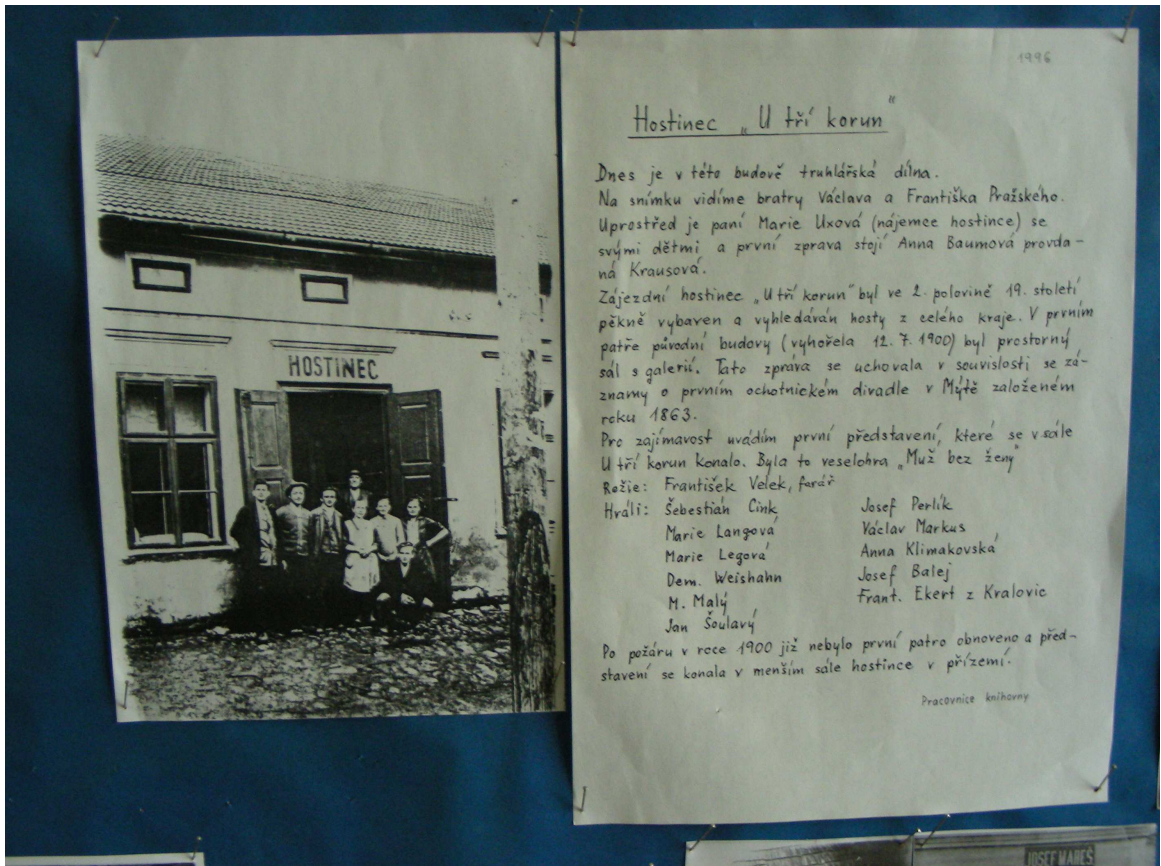 HOSTINEC
1996
Hostinec „U tří korun"
Dnes je v této budově truhlářská dílna.
Na snímku vidíme bratry Václava a Františka Pražského.
Uprostřed je paní Marie Uxová (nájemce hostince) se
svými dětmi a první zprava stojí Anna Baumová provda-
ná Krausová.
Zájezdní hostinec „U tří korun" byl ve 2. polovině 19. století
pěkně vybaven a vyhledáván hosty z celého kraje. V prvním
patře původní budovy (vyhořela 12. 7. 1900) byl prostorný
sál s galerií. Tato zpráva se uchovala v souvislosti se zá-
znamy o prvním ochotnickém divadle v Mýtě založeném
roku 1863.
Pro zajímavost uvádím první představení, které se v sále
U tří korun konalo. Byla to veselohra „Muž bez ženy"
Režie: František Velek, farář
Hráli: Šebestián Cink Josef Perlík
Marie Langová Václav Markus
Marie Legová Anna Klimakovská
Dem. Weishahn Josef Balej
M. Malý Frant. Ekert z Kralovic
Jan Šoulavý
Po požáru v roce 1900 již nebylo první patro obnoveno a před-
stavení se konala v menším sále hostince v přízemí.
Pracovnice knihovny
JOSEF MAREŠ